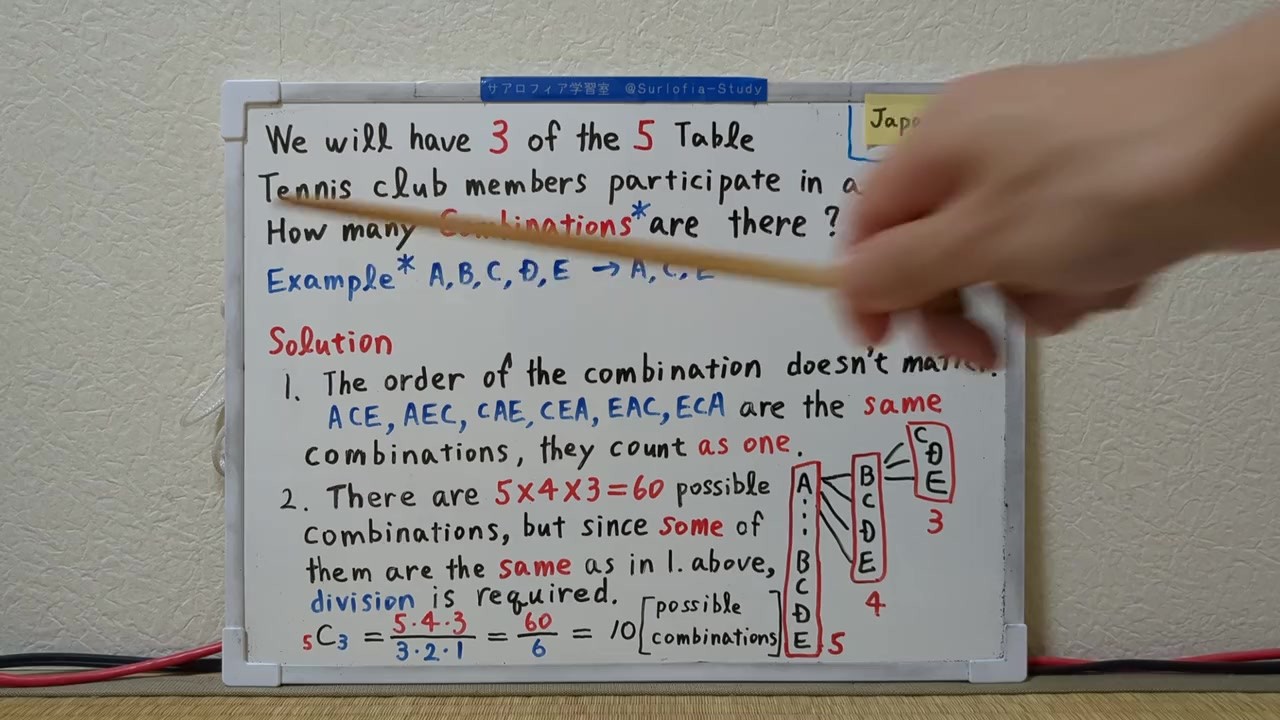 サアロフィア学習室 @Surlofia-Study
We will have 3 of the 5 Table
Tennis club members participate in a
How many Combinations* are there ?
Example* A, B, C, D, E → A, C, E
Solution
1. The order of the combination doesn't matter.
ACE, AEC, CAE, CEA, EAC, ECA are the same
combinations, they count as one.
2. There are 5×4×3=60 possible
combinations, but since some of
them are the same as in 1. above,
division is required.
5C3 = 5·4·3 / 3·2·1 = 60 / 6 = 10 [possible combinations]
A
⋮
B
C
D
E
5
B
C
D
E
4
C
D
E
3